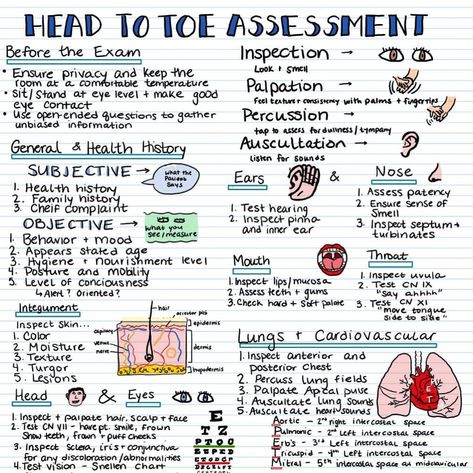 HEAD TO TOE ASSESSMENT
Before the Exam
• Ensure privacy and keep the
room at a comfortable temperature
• Sit/Stand at eye level + make good
eye contact
• Use open-ended questions to gather
unbiased information
Inspection →
Look + Smell
Palpation →
feel texture + consistency with palms + fingertips
Percussion →
tap to assess for dullness/tympany
Auscultation →
listen for sounds
General & Health History
SUBJECTIVE
What the
Patient
Says
1. Health history
2. Family history
3. Cheif complaint
OBJECTIVE
What you
see/measure
1. Behavior + mood
2. Appears stated age
3. Hygiene + Nourishment level
4. Posture and mobility
5. Level of conciousness
↳ Alert? Oriented?
Ears
1. Test hearing
2. Inspect pinna
and inner ear
&
Nose
1. Assess patency
2. Ensure sense of
Smell
3. Inspect septum +
turbinates
Mouth
1. Inspect lips/mucosa
2. Assess teeth + gums
3. Check hard + Soft palate
Throat
1. Inspect uvula
2. Test CN IX
"Say ahhhh"
3. Test CN XI
"move tongue
side to side"
Integument
Inspect Skin...
1. Color
2. Moisture
3. Texture
4. Turgor
5. Lesions
hair
arrector pili
capillary
venule
nerve
epidermis
dermis
hypodermis
Lungs + Cardiovascular
1. Inspect anterior and
posterior Chest
2. Percuss lung fields
3. Palpate Apical pulse
4. Auscultate lung sounds
5. Auscultate heart sounds
Aortic - 2nd right intercostal space
Pulmonic - 2nd Left intercostal space
Erb's - 3rd Left intercostal space
Tricuspid - 4th Left intercostal space
Mitral - 5th Left intercostal space @ midclavicular
Head & Eyes
1. Inspect + palpate hair, scalp + face
2. Test CN VII - have pt. smile, frown
Show teeth, frown + puff cheeks
3. Inspect Sclera, iris + conjunctiva
for any discoloration/abnormalities
4. Test vision - Snellen chart
E
T Z